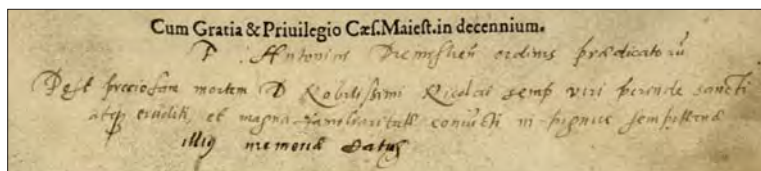 Cum Gratia & Priuilegio Cæs. Maiest. in decennium.
F. Antonius ordinis prædicatorū
Post preciosam mortem D Nobilissimi Nicolai semp viri perinde sancti
atq eruditi, et magna familiaritate coniūcti in pignus sempiternæ
illiꝰ memoriæ datus